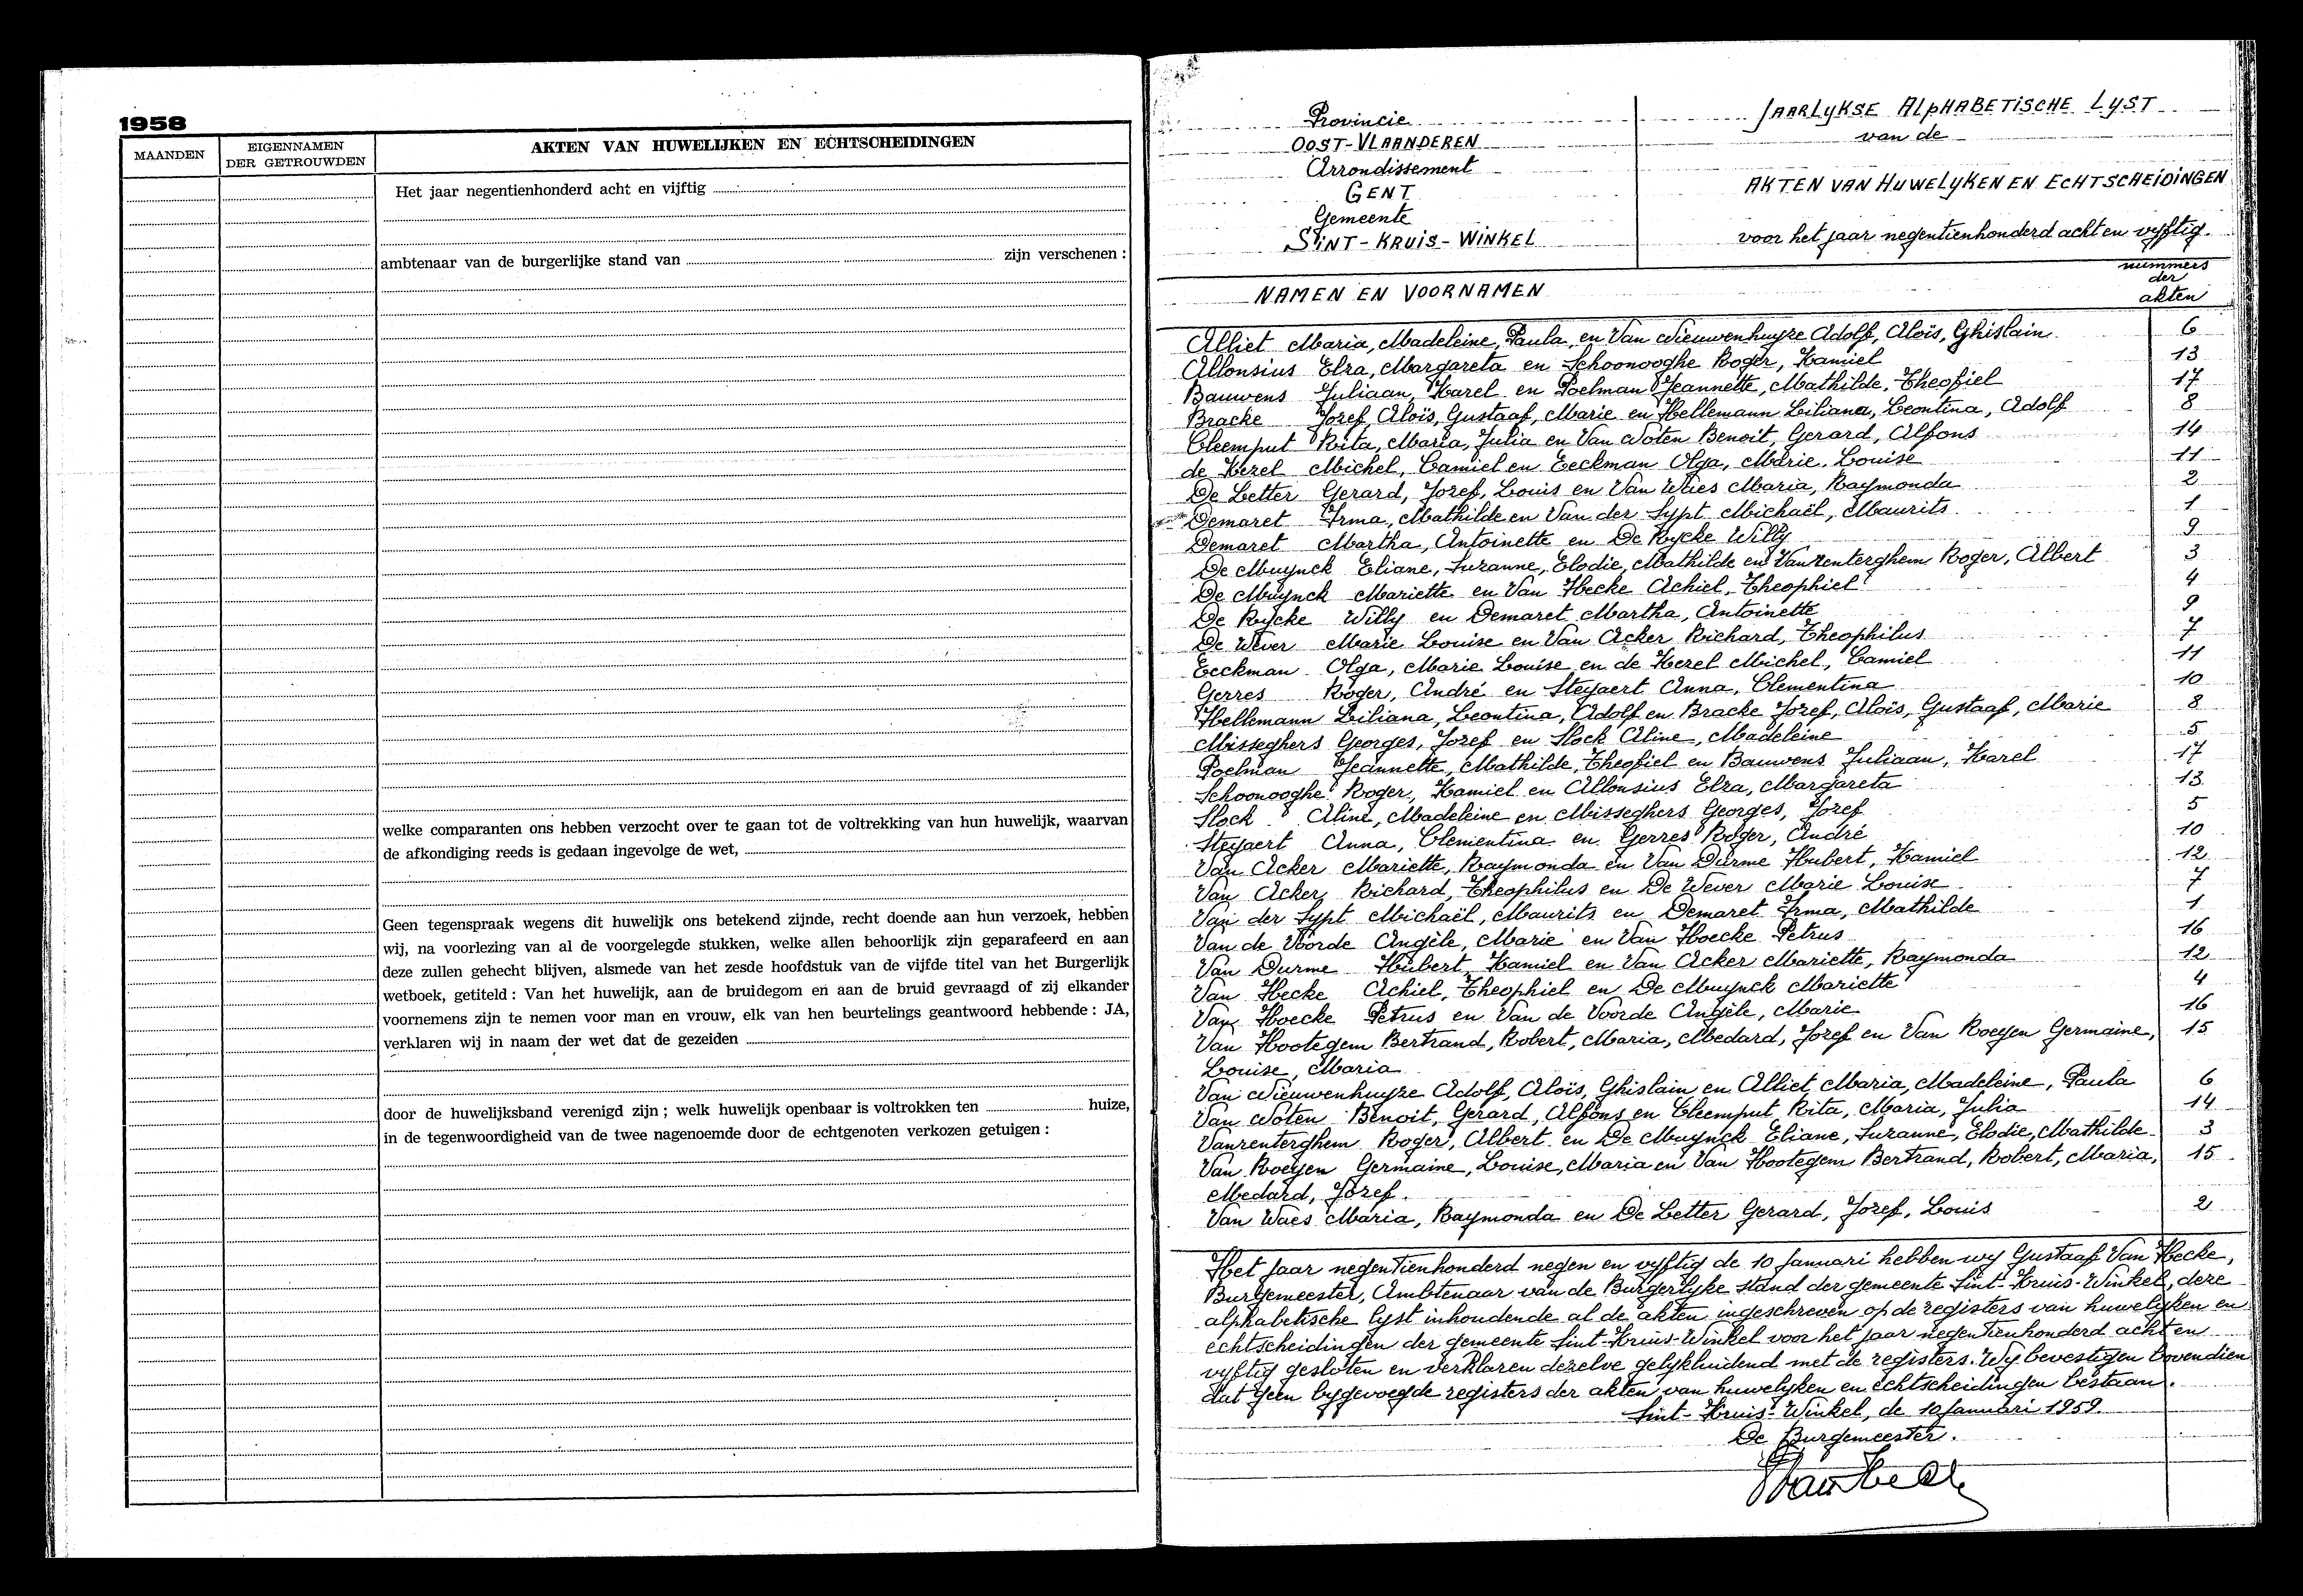 1958
MAANDEN
EIGENNAMEN
DER GETROUWDEN
AKTEN VAN HUWELIJKEN EN ECHTSCHEIDINGEN
Het jaar negentienhonderd acht en vijftig
ambtenaar van de burgerlijke stand van zijn verschenen :
welke comparanten ons hebben verzocht over te gaan tot de voltrekking van hun huwelijk, waarvan
de afkondiging reeds is gedaan ingevolge de wet,
Geen tegenspraak wegens dit huwelijk ons betekend zijnde, recht doende aan hun verzoek, hebben
wij, na voorlezing van al de voorgelegde stukken, welke allen behoorlijk zijn geparafeerd en aan
deze zullen gehecht blijven, alsmede van het zesde hoofdstuk van de vijfde titel van het Burgerlijk
wetboek, getiteld : Van het huwelijk, aan de bruidegom en aan de bruid gevraagd of zij elkander
voornemens zijn te nemen voor man en vrouw, elk van hen beurtelings geantwoord hebbende : JA,
verklaren wij in naam der wet dat de gezeiden
door de huwelijksband verenigd zijn ; welk huwelijk openbaar is voltrokken ten huize,
in de tegenwoordigheid van de twee nagenoemde door de echtgenoten verkozen getuigen :
Provincie
OOST-VLAANDEREN
Arrondissement
GENT
Gemeente
SINT-KRUIS-WINKEL
JAARLYKSE ALPHABETISCHE LYST
van de
AKTEN VAN HUWELYKEN EN ECHTSCHEIDINGEN
voor het jaar negentienhonderd acht en vyftig.
NAMEN EN VOORNAMEN
nummers
der
akten
Alliet Maria, Madeleine, Paula, en Van Nieuwenhuyze Adolf, Aloïs, Ghislain 6
Allonsius Elza, Margareta en Schoonooghe Roger, Kamiel 13
Bauwens Juliaan, Karel en Poelman Jeannette, Mathilde, Theofiel 17
Bracke Jozef, Aloïs, Gustaaf, Marie en Hellemann Liliana, Leontina, Adolf 8
Cleemput Rita, Maria, Julia en Van Noten Benoit, Gerard, Alfons 14
de Kezel Michel, Camiel en Eeckman Olga, Marie Louise 11
De Letter Gerard, Jozef, Louis en Van Waes Maria, Raymonda 2
Demaret Irma, Mathilde en Van der Sypt Michaël, Maurits 1
Demaret Martha, Antoinette en De Rycke Willy 9
De Muynck Eliane, Suzanne, Elodie, Mathilde en Vanrenterghem Roger, Albert 3
De Muynck Mariette en Van Hecke Achiel, Theophiel 4
De Rycke Willy en Demaret Martha, Antoinette 9
De Wever Marie Louise en Van Acker Richard, Theophilus 7
Eeckman Olga, Marie Louise en de Kezel Michel, Camiel 11
Gerres Roger, André en Steyaert Anna, Clementina 10
Hellemann Liliana, Leontina, Adolf en Bracke Jozef, Aloïs, Gustaaf, Marie 8
Misseghers Georges, Jozef en Slock Aline, Madeleine 5
Poelman Jeannette, Mathilde, Theofiel en Bauwens Juliaan, Karel 17
Schoonooghe Roger, Kamiel en Allonsius Elza, Margareta 13
Slock Aline, Madeleine en Misseghers Georges, Jozef 5
Steyaert Anna, Clementina en Gerres Roger, André 10
Van Acker Mariette, Raymonda en Van Durme Hubert, Kamiel 12
Van Acker Richard, Theophilus en De Wever Marie Louise 7
Van der Sypt Michaël, Maurits en Demaret Irma, Mathilde 1
Van de Voorde Angèle, Marie en Van Hoecke Petrus 16
Van Durme Hubert, Kamiel en Van Acker Mariette, Raymonda 12
Van Hecke Achiel, Theophiel en De Muynck Mariette 4
Van Hoecke Petrus en Van de Voorde Angèle, Marie 16
Van Hootegem Bertrand, Robert, Maria, Medard, Jozef en Van Roeyen Germaine, 15
Louise, Maria
Van Nieuwenhuyze Adolf, Aloïs, Ghislain en Alliet Maria, Madeleine, Paula 6
Van Noten Benoit, Gerard, Alfons en Cleemput Rita, Maria, Julia 14
Vanrenterghem Roger, Albert en De Muynck Eliane, Suzanne, Elodie, Mathilde 3
Van Roeyen Germaine, Louise, Maria en Van Hootegem Bertrand, Robert, Maria, 15
Medard, Jozef.
Van Waes Maria, Raymonda en De Letter Gerard, Jozef, Louis 2
Het jaar negentienhonderd negen en vyftig de 10 Januari hebben wy Gustaaf Van Hecke,
Burgemeester, Ambtenaar van de Burgerlyke stand der gemeente Sint-Kruis-Winkel, deze
alphabetische lyst inhoudende al de akten ingeschreven op de registers van huwelyken en
echtscheidingen der gemeente Sint-Kruis-Winkel voor het jaar negentienhonderd acht en
vyftig gesloten en verklaren dezelve gelykluidend met de registers. Wy bevestigen bovendien
dat geen bygevoegde registers der akten van huwelyken en echtscheidingen bestaan.
Sint-Kruis-Winkel, de 10 Januari 1959
De Burgemeester.